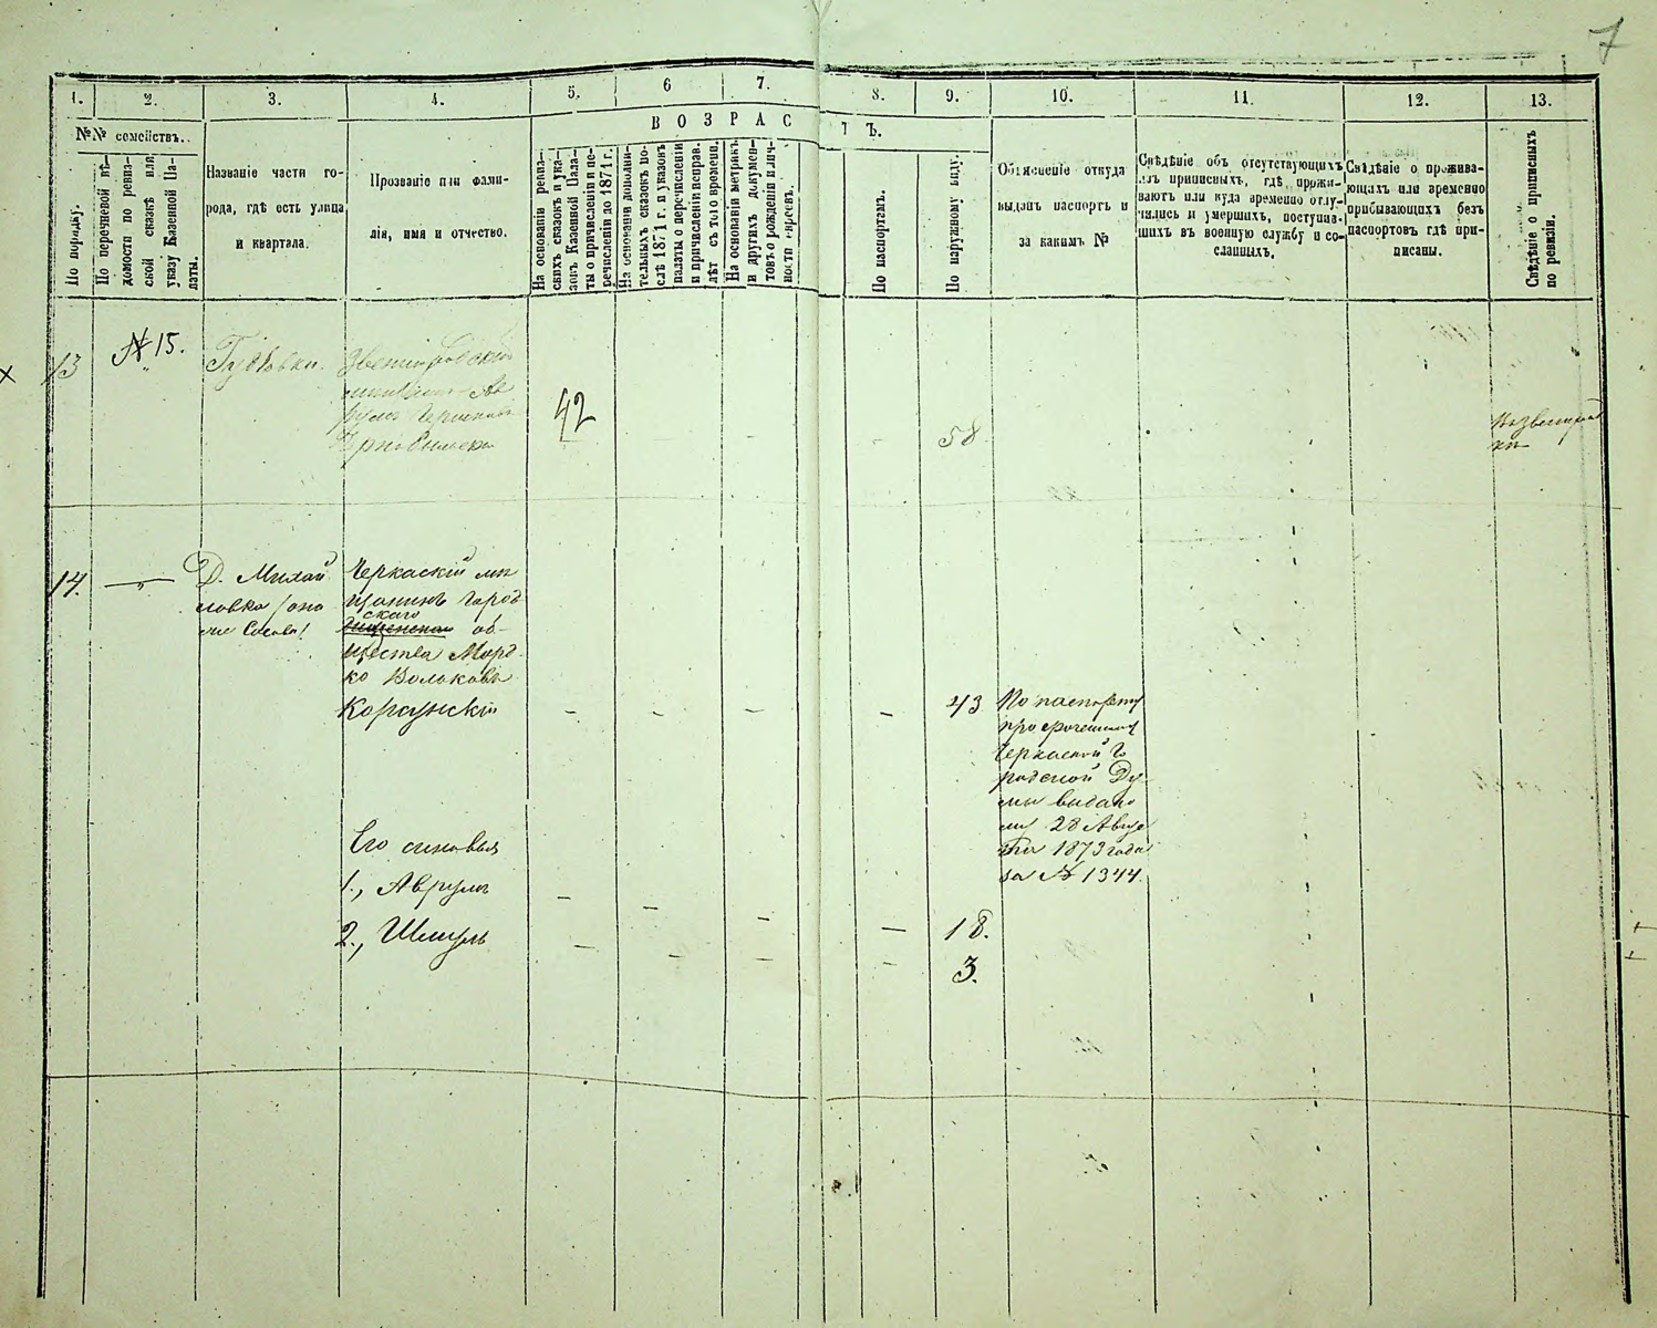 7
1. 2. 3. 4. 5. 6 7. 8. 9. 10. 11. 12. 13.
№№ семействъ.
ВОЗРАСТЪ.
По порядку.
По перечневой вѣ-
домости по ревиз-
ской сказкѣ или
указу Казенной Па-
латы.
Названіе части го-
рода, гдѣ есть улица
и квартала.
Прозваніе или фами-
лія, имя и отчество.
На основаніи ревиз-
скихъ сказокъ и ука-
зовъ Казенной Пала-
ты о причисленіи и пе-
речисленіи до 1871 г.
На основаніи дополни-
тельныхъ сказокъ по-
слѣ 1871 г. и указовъ
палаты о перечисленіи
и причисленіи исправ.
лѣт съ того времени.
На основаніи метрикъ
и другихъ докумен-
товъ о рожденіи и лич-
ности евреевъ.
По паспортамъ.
По наружному виду.
Объясненіе откуда
выданъ паспортъ и
за какимъ №
Свѣдѣніе объ отсутствующихъ
изъ приписныхъ, гдѣ прожи-
ваютъ или куда временно отлу-
чились и умершихъ, поступив-
шихъ въ военную службу и со-
сланныхъ.
Свѣдѣніе о прожива-
ющихъ или временно
прибывающихъ безъ
паспортовъ гдѣ при-
писаны.
Свѣдѣніе о приписныхъ
по ревизіи.
13 № 15.
42 — — — 58
14. — Д. Михай
ловка (она
же
Черкаскій мѣ
щанинъ Город
скаго
об-
щества Морд-
ко Вольковъ
Корсунскій — — — — 43
По паспорту
просроченному
Черкаской Го
родской Ду-
мы выдано
му 28 Авгус
та 1873 года
за № 1344.
Его сыновья
1., Аврумъ — — — — 18.
2., Шмуль — — — — 3.